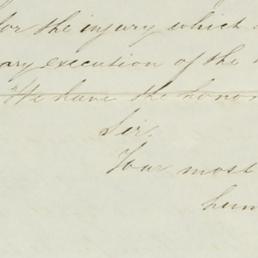 for the injury which
ary execution of the
We have the honor
Sir,
Your most
hum